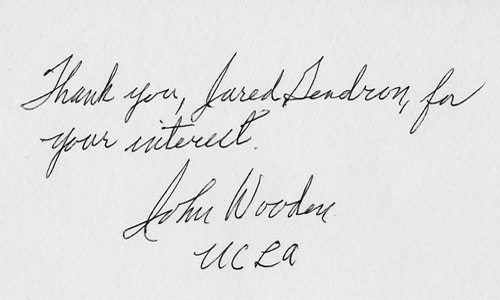 Thank you, Jared Gendron, for
your interest.
John Wooden
UCLA